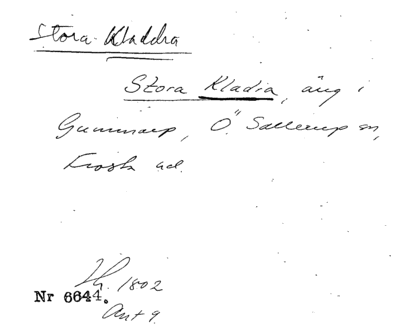 Stora Kladdra
Stora Kladra, äng i
Gummarp, Ö Sallerup sn,
Frosta hd.
Th. 1802
Nr 6644.
Akt 9